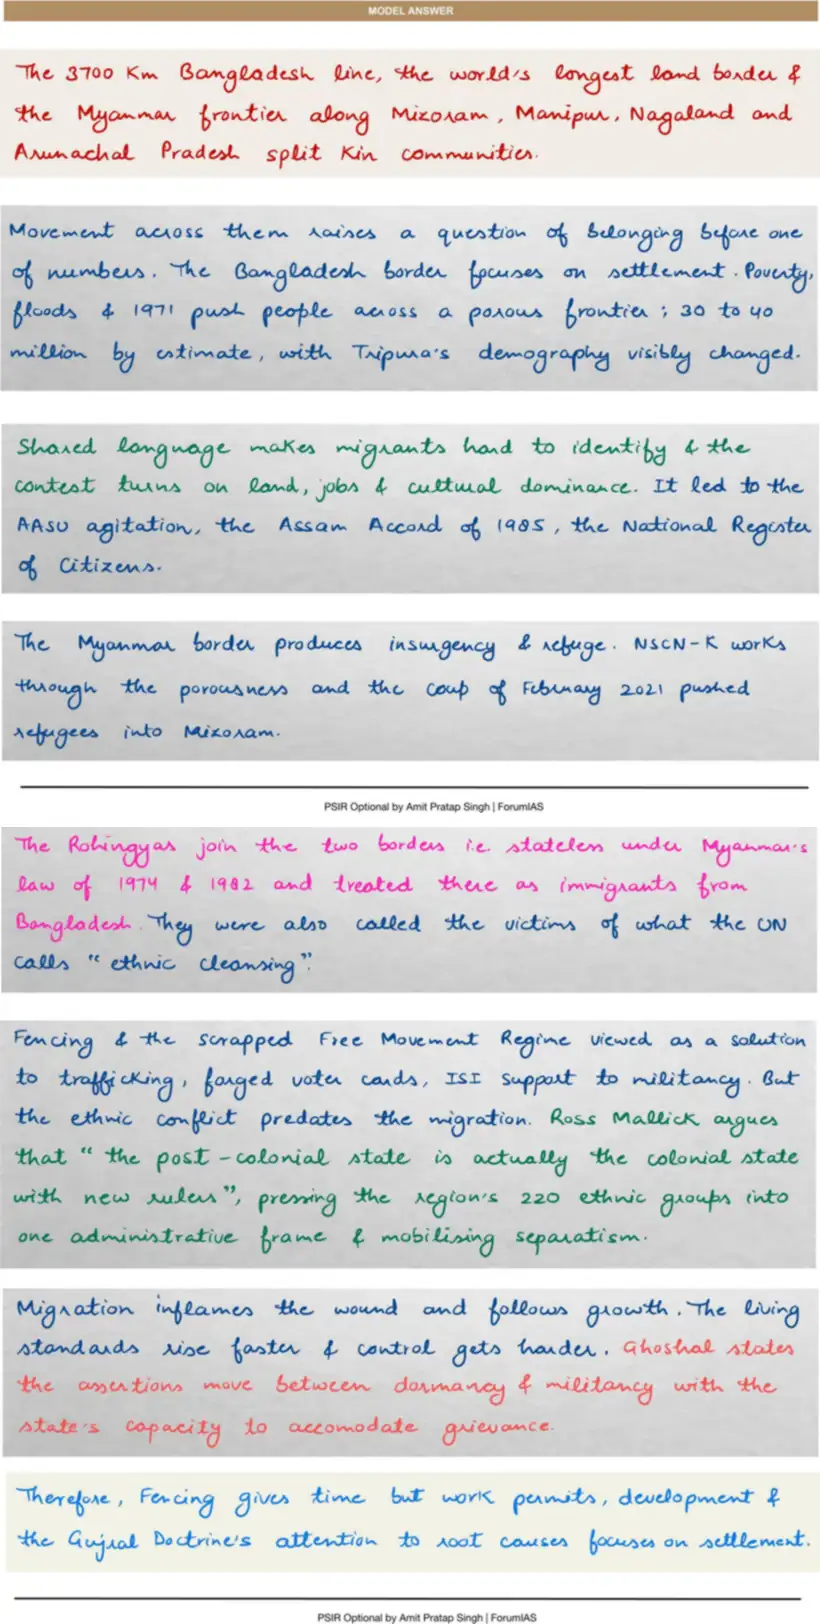 MODEL ANSWER
The 3700 Km Bangladesh line, the world's longest land border &
the Myanmar frontier along Mizoram, Manipur, Nagaland and
Arunachal Pradesh split Kin communities.
Movement across them raises a question of belonging before one
of numbers. The Bangladesh border focuses on settlement. Poverty,
floods & 1971 push people across a porous frontier; 30 to 40
million by estimate, with Tripura's demography visibly changed.
Shared language makes migrants hard to identify & the
contest turns on land, jobs & cultural dominance. It led to the
AASU agitation, the Assam Accord of 1985, the National Register
of Citizens.
The Myanmar border produces insurgency & refuge. NSCN-K works
through the porousness and the coup of February 2021 pushed
refugees into Mizoram.
PSIR Optional by Amit Pratap Singh | ForumIAS
The Rohingyas join the two borders i.e. stateless under Myanmar's
law of 1974 & 1982 and treated there as immigrants from
Bangladesh. They were also called the victims of what the UN
calls "ethnic cleansing".
Fencing & the scrapped Free Movement Regime viewed as a solution
to trafficking, forged voter cards, ISI support to militancy. But
the ethnic conflict predates the migration. Ross Mallick argues
that "the post-colonial state is actually the colonial state
with new rulers", pressing the region's 220 ethnic groups into
one administrative frame & mobilising separatism.
Migration inflames the wound and follows growth. The living
standards rise faster & control gets harder. Ghoshal states
the assertions move between dormancy & militancy with the
state's capacity to accomodate grievance.
Therefore, Fencing gives time but work permits, development &
the Gujral Doctrine's attention to root causes focuses on settlement.
PSIR Optional by Amit Pratap Singh | ForumIAS